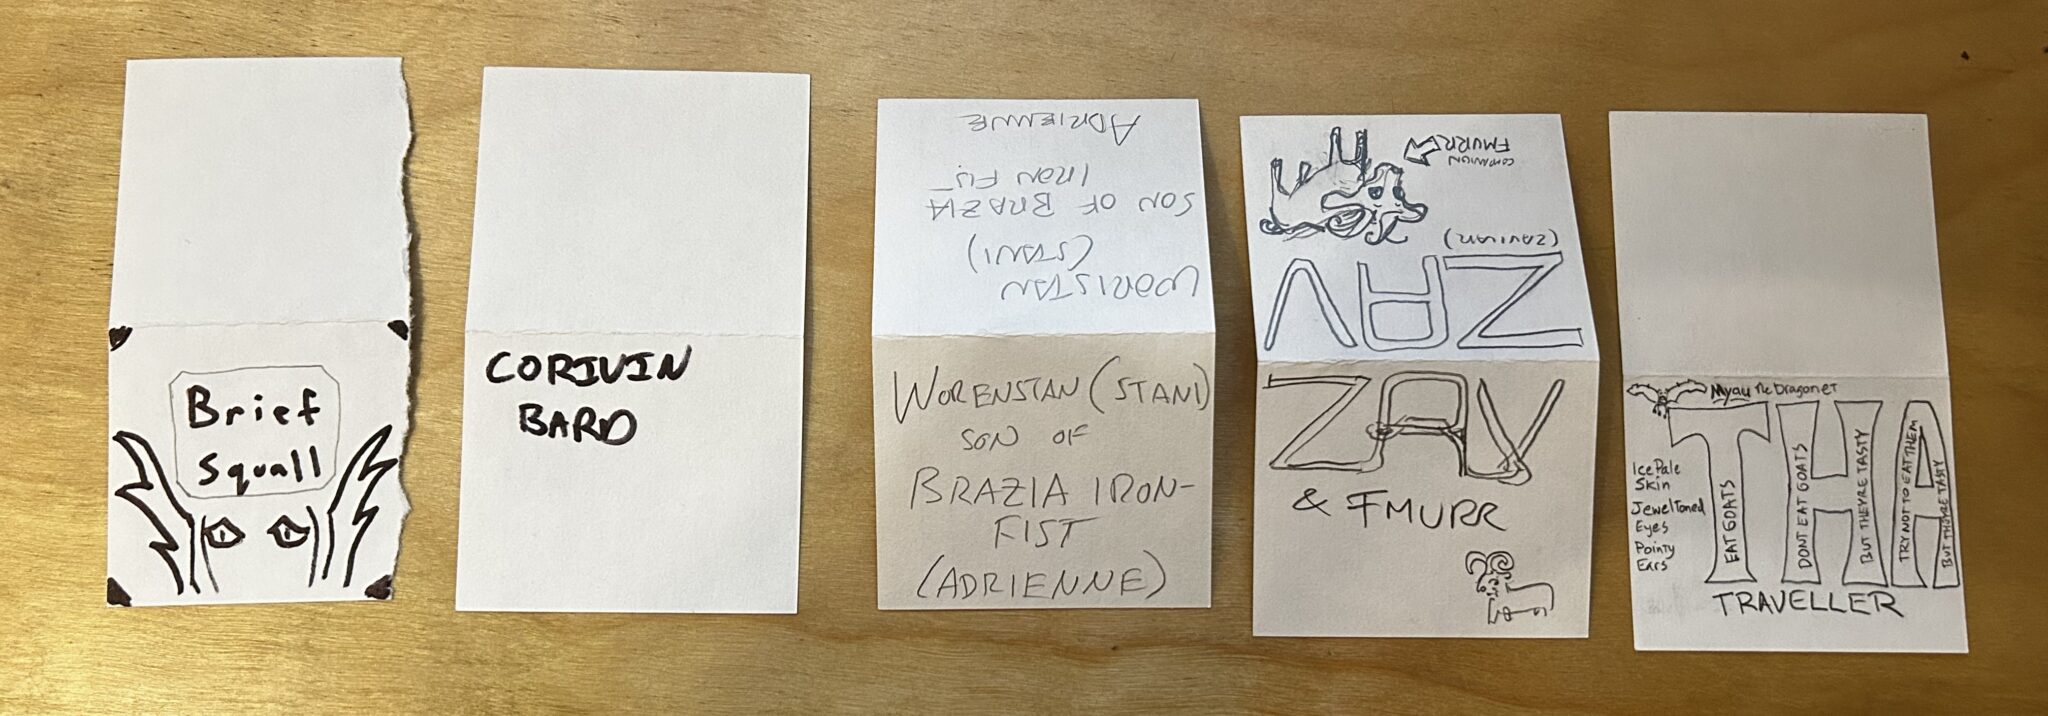 Brief
Squall
CORIVIN
BARD
WORISTAN
(STANI)
SON OF BRAZIA
IRON FIST
ADRIENNE
WORENSTAN (STANI)
SON OF
BRAZIA IRON-
FIST
(ADRIENNE)
ZAV
COMPANION
FMURR
ZAV
& FMURR
Myau the Dragonet
THA
EAT GOATS
DONT EAT GOATS
BUT THEYRE TASTY
TRY NOT TO EAT THEM
BUT THEYRE TASTY
Ice Pale
Skin
Jewel Toned
Eyes
Pointy
Ears
TRAVELLER